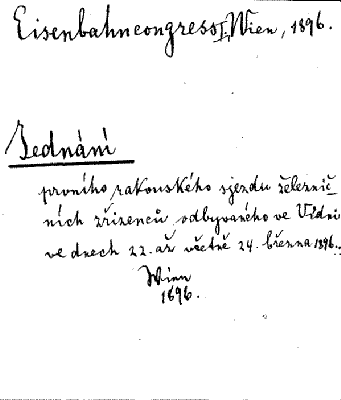 Eisenbahncongress I, Wien, 1896.
Jednání
prvního rakouského sjezdu železnič-
ních zřízenců odbývaného ve Vídni
ve dnech 22. až včetně 24. března 1896.
Wien
1896.